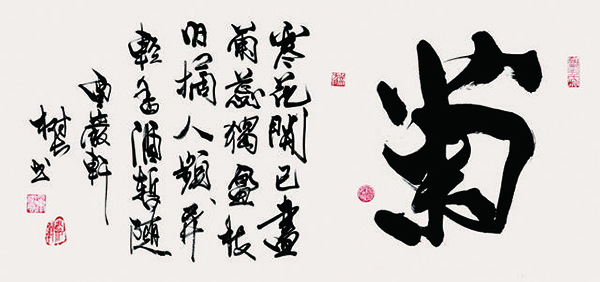 菊
寒花開已盡
菊蕊獨盈枝
旧摘人頻异
輕香酒暫隨
軒
书